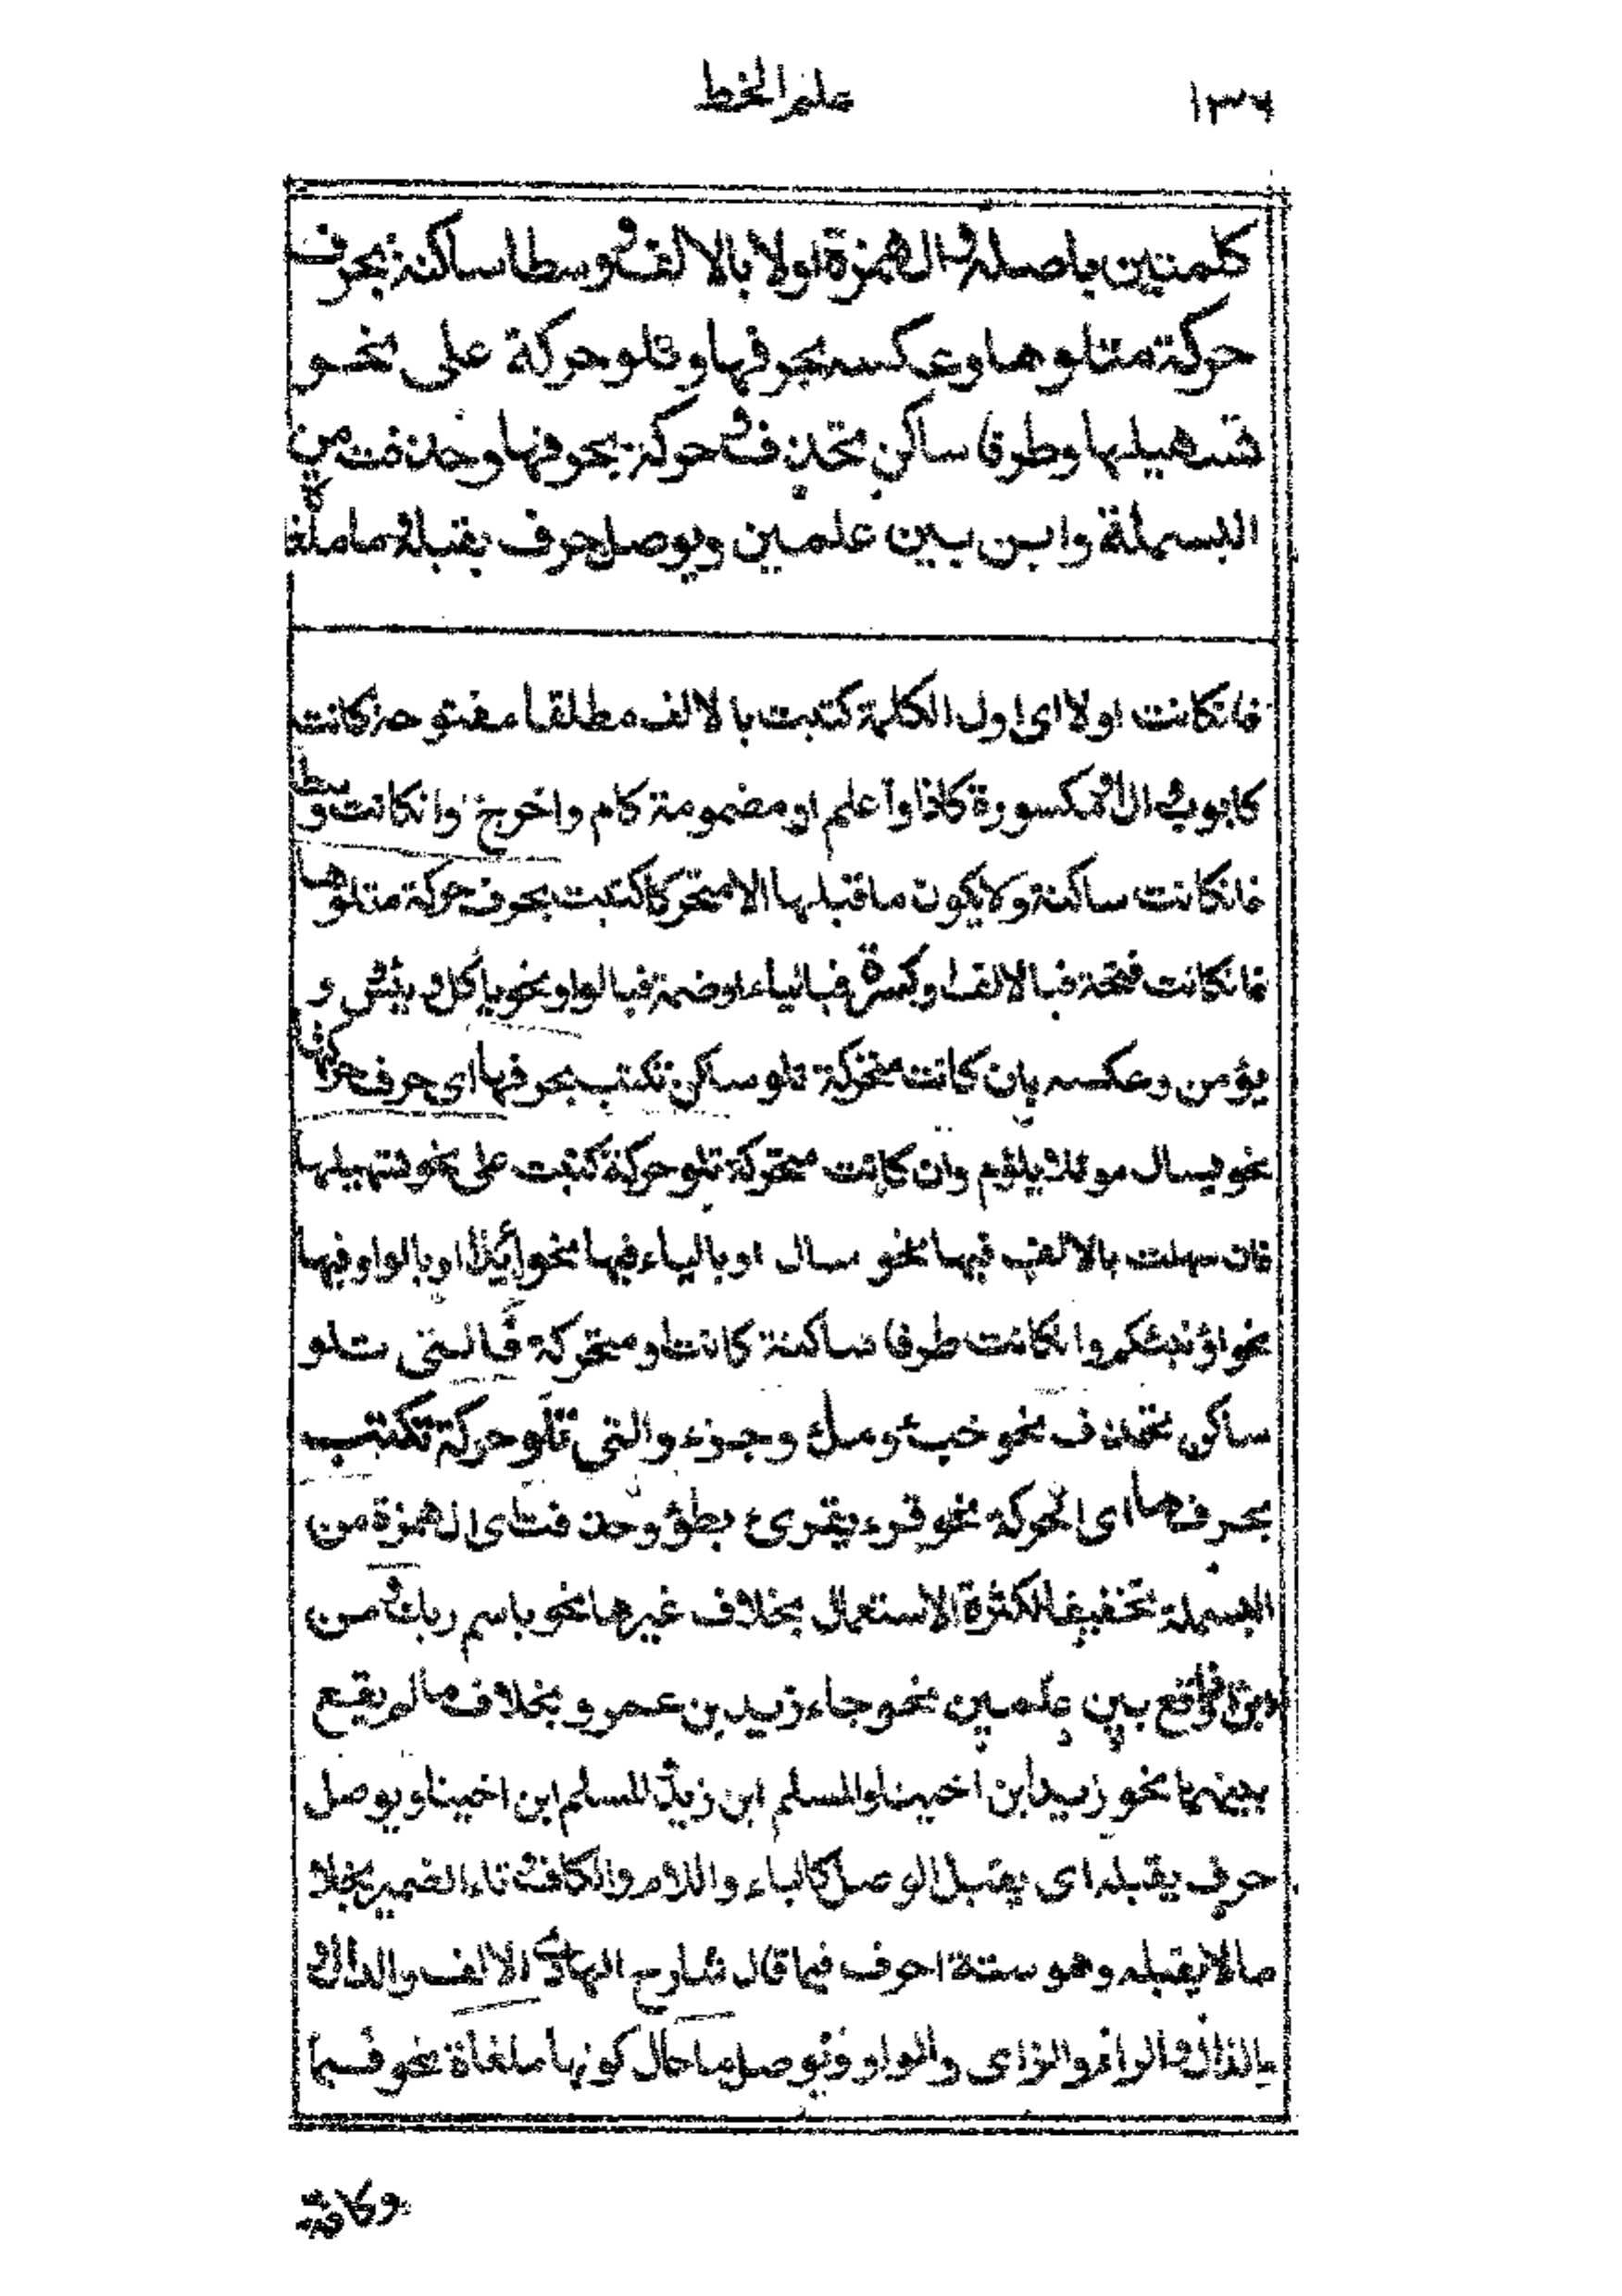 ١٣٦
علم الخط
كلمتين باصله و الهمزة اولا بالالف و وسطا ساكنة بحرف
حركة متلوها وعكسه بحرفها وتلو حركة على نحو
تسهيلها وطرفا ساكن تحذف و حركة بحرفها وحذفت من
البسملة وابن بين علمين ويوصل حرف بقبله ما ملغاة
فانكانت اولا اى اول الكلمة كتبت بالالف مطلقا مفتوحة كانت
كايوب او مكسورة كاذا واعلم او مضمومة كام واخرج وانكانت وسطا
فانكانت ساكنة ولا يكون ما قبلها الا متحركا كتبت بحرف حركة متلوها
فانكانت فتحة فبالالف او كسرة فبالياء او ضمة فبالواو نحو ياكل و يئس و
يؤمن وعكسه بان كانت متحركة تلو ساكن تكتب بحرفها اى حرف حركتها
نحو يسال موئلا يلؤم وان كانت متحركة تلو حركة كتبت على نحو تسهيلها
فان سهلت بالالف فيها نحو سال او بالياء فيها نحو ائذا او بالواو فيها
نحو اؤنبئكم وانكانت طرفا ساكنة كانت او متحركة فالتى تتلو
ساكن تحذف نحو خبء وملء وجزء والتى تتلو حركة تكتب
بحرفها اى الحركة نحو قرء يقرئ بطؤ وحذفت اى الهمزة من
البسملة تخفيفا لكثرة الاستعمال بخلاف غيرها نحو باسم ربك و من
ابن الواقع بين علمين نحو جاء زيد بن عمرو بخلاف ما لم يقع
بينهما نحو زيد ابن اخينا والمسلم ابن زيد المسلم ابن اخينا ويوصل
حرف يقبله اى يقبل الوصل كالباء واللام والكاف و تاء الضمير بخلا
ما لا يقبله وهو ستة احرف فيما قال شارح الهادى الالف والدال و
والذال و الراء والزاى والواو وتوصل ما حال كونها ملغاة نحو فبما
وكافة